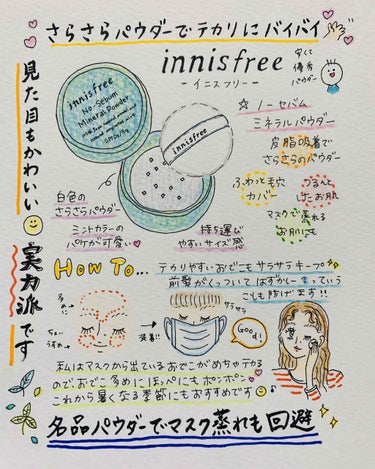 さらさらパウダーでテカリにバイバイ
見た目もかわいい
実力派です
innisfree
-イニスフリー-
安くて
優秀
パウダー
innisfree
No-Sebum
Mineral Powder
innisfree
☆ ノーセバム
ミネラルパウダー
皮脂吸着で
さらさらのパウダー
ふわっと毛穴
カバー
つるんと
したお肌
マスクで蒸れる
お肌にも
白色の
さらさらパウダー
ミントカラーの
パケが可愛い♡
持ち運び
やすいサイズ感
How To...
テカりやすいおでこもサラサラキープ
前髪がくっついてはずかしーっていう
ことも防げます!!
多めに
ちょい
うすめ
装着!!
サラサラ
Good!
私はマスクから出ているおでこがめちゃテカる
のでおでこ多めにほっぺにもポンポン
これから暑くなる季節にもおすすめです☺
名品パウダーでマスク蒸れも回避